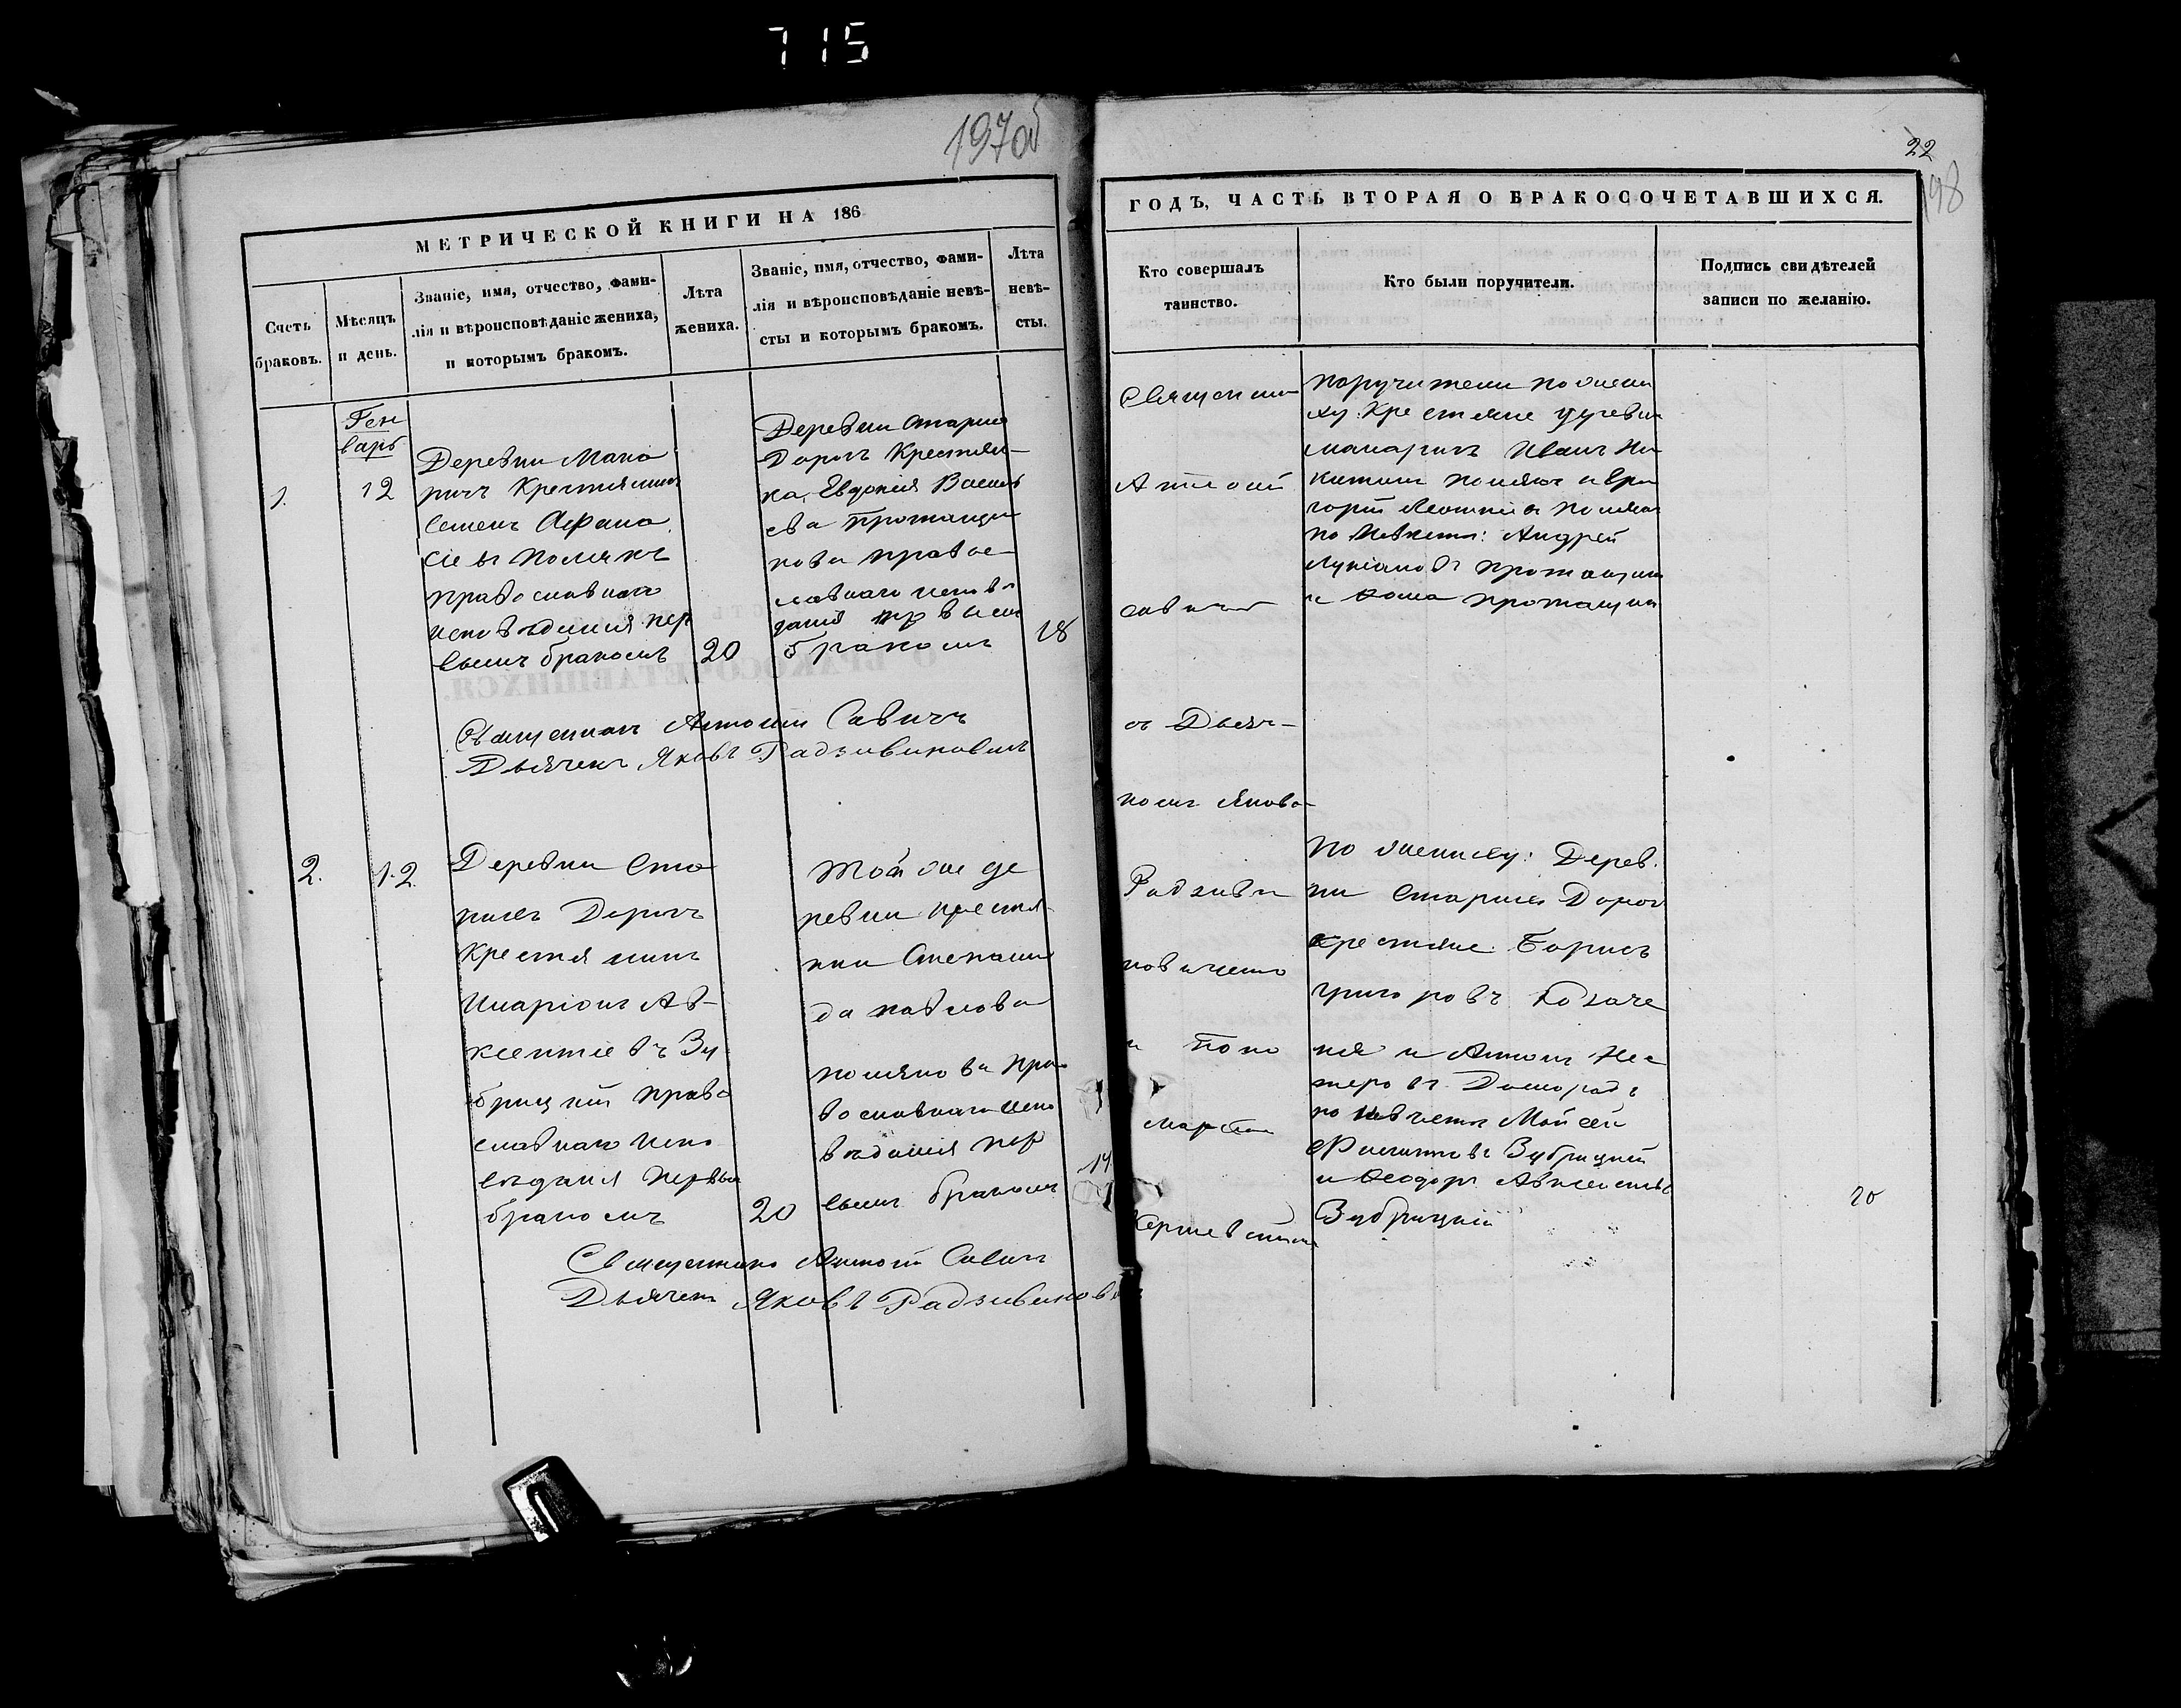 715
197об
МЕТРИЧЕСКОЙ КНИГИ НА 186
Счетъ браковъ.
Мѣсяцъ и день.
Званіе, имя, отчество, фами-
лія и вѣроисповѣданіе жениха,
и которымъ бракомъ.
Лѣта жениха.
Званіе, имя, отчество, фами-
лія и вѣроисповѣданіе невѣ-
сты и которымъ бракомъ.
Лѣта невѣ-
сты.
Ген
варь
1.
12
Деревни Мака
ричъ Крестянинъ
Семенъ Афана
сіевъ Полякъ
православнаго
исповѣданія пер
вымъ бракомъ
20
Деревни Старыхъ
Дорогъ Крестян-
ка Евдокія Василь
ева
нова право-
славнаго исповѣ
данія
бракомъ
18
Священникъ Антоній Савичъ
Дьячекъ Яковъ Радзивиновичъ
2.
12.
Деревни Ста
рыхъ Дорогъ
Крестянинъ
Иларіонъ Ав-
ксентіевъ Зу
брицкій право
славнаго испо
вѣданія первы
бракомъ
20
Той же де
ревни крестя
нки Степани
да Павлова
Полякова пра
вославнаго испо
вѣданія пер
вымъ бракомъ
Священникъ Антоній Савичъ
Дьячекъ Яковъ Радзивинов
22
198
ГОДЪ, ЧАСТЬ ВТОРАЯ О БРАКОСОЧЕТАВШИХСЯ.
Кто совершалъ
таинство.
Кто были поручители.
Подпись свидѣтелей
записи по желанію.
Священни
Антоній
Савичъ
съ Дьяч-
комъ Яково
Радзиви
новичемъ
и Поно
маремъ
поручители по жени
ху Крестяне деревни
Макаричъ Иванъ Ни
китинъ Полякъ и Гри
горій Полякъ
по Невѣстѣ: Андрей
Лукіановъ
и Фома
По жениху: Дерев.
ни Старыхъ Дорогъ
крестяне: Борисъ
Григоровъ Козаче
ня и Антонъ Нес
теровъ
по Невѣстѣ Мойсей
Зубрицкій
и Феодоръ Авксентьев
Зубрицкій
20